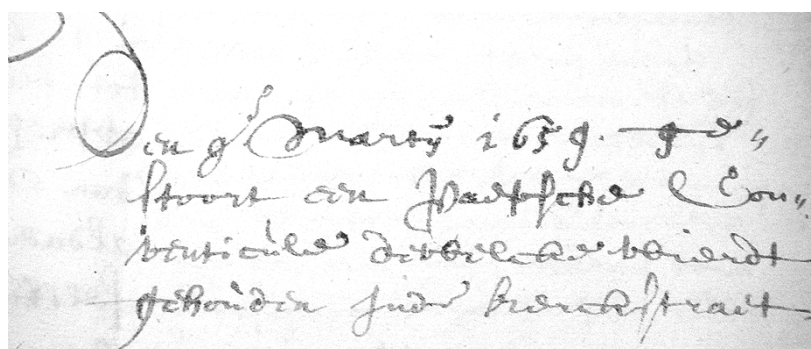 Den 9en Martij 1659. ge„
stoort een Paepsche Con„
venticule dewelcke wierdt
gehouden inde kerckstraet